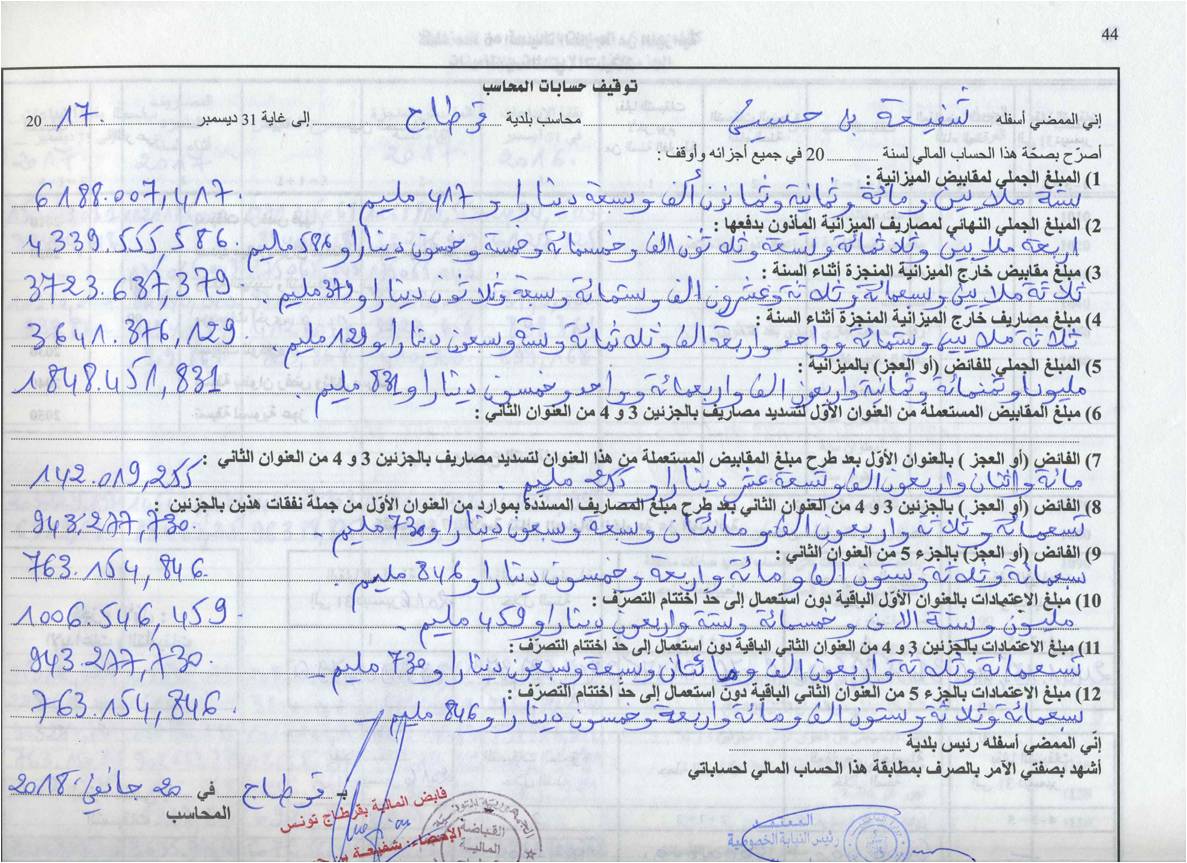 44
توقيف حسابات المحاسب
إني الممضي أسفله شفيعة بن حسين محاسب بلدية قرطاج إلى غاية 31 ديسمبر 2017.
أصرّح بصحّة هذا الحساب المالي لسنة 20 في جميع أجزائه وأوقف :
1) المبلغ الجملي لمقابيض الميزانية :
ستة ملايين ومائة وثمانية وثمانون ألف وسبعة دينارا و 417 مليم. 6188.007,417.
2) المبلغ الجملي النهائي لمصاريف الميزانية المأذون بدفعها :
اربعة ملايين وثلاثمائة وتسعة وثلاثون الف وخمسمائة وخمسة وخمسون دينارا و 586 مليم. 4.339.555,586.
3) مبلغ مقابيض خارج الميزانية المنجزة أثناء السنة :
ثلاثة ملايين وسبعمائة وثلاثة وعشرون الف وستمائة وسبعة وثلاثون دينارا و 379 مليم. 3723.637,379
4) مبلغ مصاريف خارج الميزانية المنجزة أثناء السنة :
ثلاثة ملايين وستمائة وواحد واربعة الف وثلاثمائة وستة وسبعون دينارا و 129 مليم. 3641.376,129.
5) المبلغ الجملي للفائض (أو العجز) بالميزانية :
مليونا وثمنمائة وثمانية واربعون الف واربعمائة وواحد وخمسون دينارا و 831 مليم. 1848.451,831
6) مبلغ المقابيض المستعملة من العنوان الأوّل لتسديد مصاريف بالجزئين 3 و 4 من العنوان الثاني :
7) الفائض (أو العجز ) بالعنوان الأوّل بعد طرح مبلغ المقابيض المستعملة من هذا العنوان لتسديد مصاريف بالجزئين 3 و 4 من العنوان الثاني :
مائة واثنان واربعون الف وتسعة عشر دينارا و 255 مليم. 142.019,255
8) الفائض (أو العجز ) بالجزئين 3 و 4 من العنوان الثاني بعد طرح مبلغ المصاريف المسدّدة بموارد من العنوان الأوّل من جملة نفقات هذين بالجزئين :
تسعمائة وثلاثة واربعون الف ومائتان وسبعة وسبعون دينارا و 730 مليم. 943.277,730.
9) الفائض (أو العجز) بالجزء 5 من العنوان الثاني :
سبعمائة وثلاثة وستون الف ومائة واربعة وخمسون دينارا و 846 مليم. 763.154,846.
10) مبلغ الاعتمادات بالعنوان الأوّل الباقية دون استعمال إلى حدّ اختتام التصرّف :
مليون وستة الاف وخمسمائة وستة واربعون دينارا و 459 مليم. 1006.546,459.
11) مبلغ الاعتمادات بالجزئين 3 و 4 من العنوان الثاني الباقية دون استعمال إلى حدّ اختتام التصرّف :
تسعمائة وثلاثة واربعون الف ومائتان وسبعة وسبعون دينارا و 730 مليم. 943.277,730.
12) مبلغ الاعتمادات بالجزء 5 من العنوان الثاني الباقية دون استعمال إلى حدّ اختتام التصرّف :
سبعمائة وثلاثة وستون الف ومائة واربعة وخمسون دينارا و 846 مليم. 763.154,846.
إنّي الممضي أسفله رئيس بلدية
أشهد بصفتي الآمر بالصرف بمطابقة هذا الحساب المالي لحساباتي
بـ قرطاج في 20 جانفي 2018.
المحاسب
قابض المالية بقرطاج تونس
الإمضاء: شفيعة بن
القباضة
المالية
المعتمد
رئيس النيابة الخصوصية